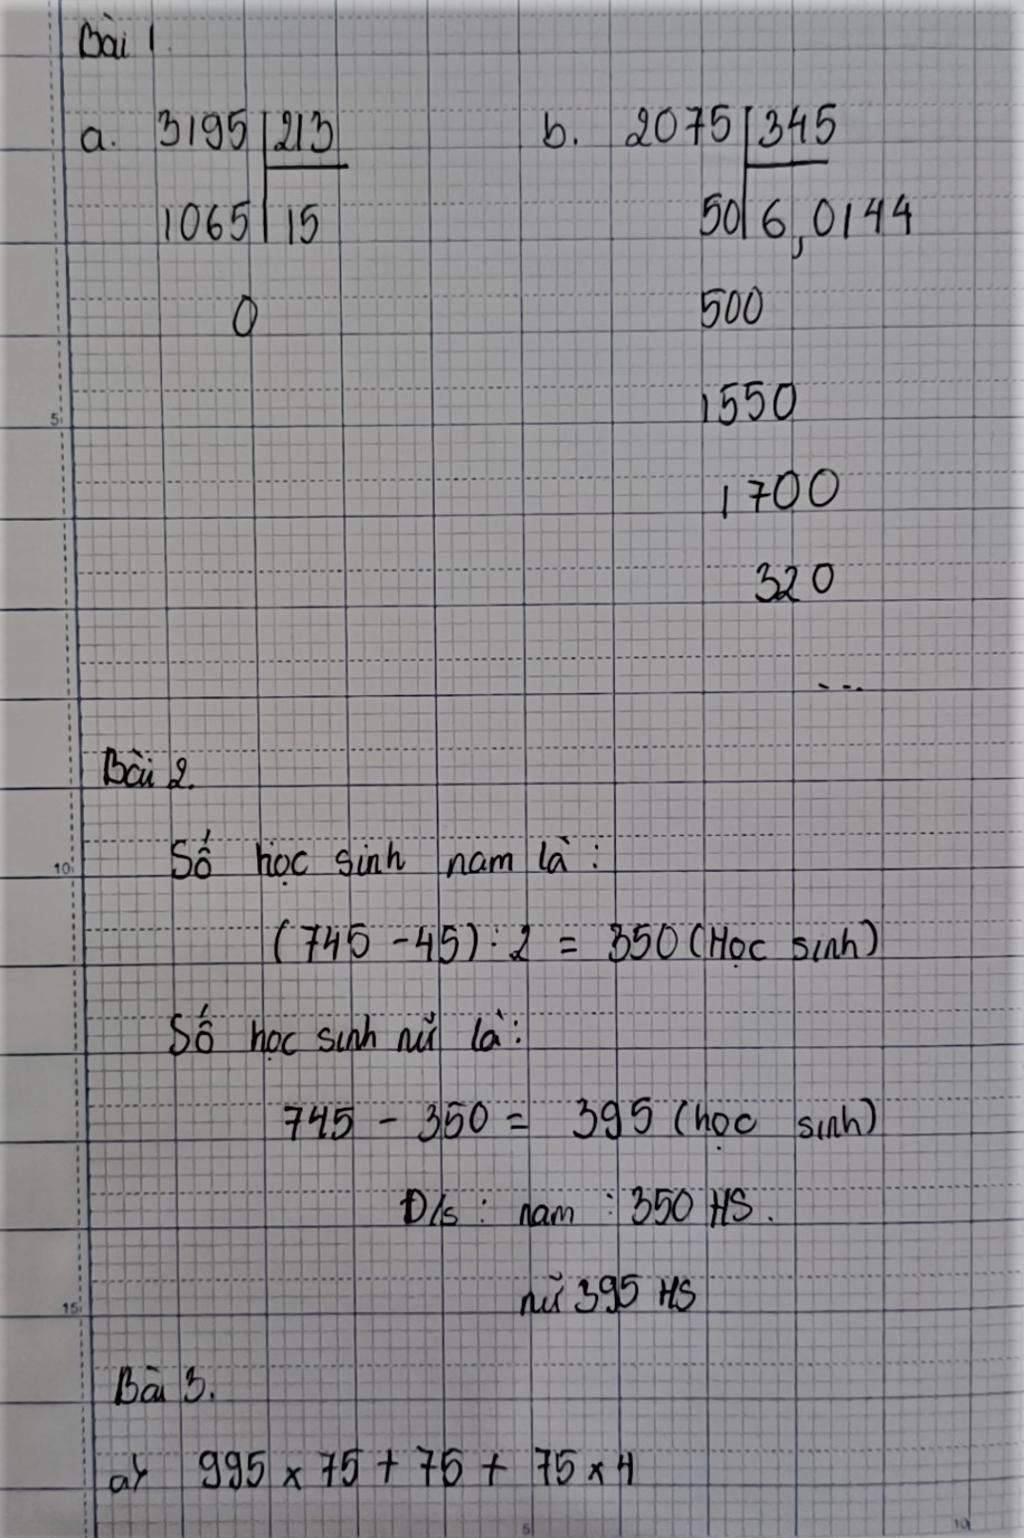 Bài 1.
a. 3195 213 b. 2075 345
1065 15 50 6,0144
0 500
1550
1700
320
...
Bài 2.
Số học sinh nam là:
(745 - 45) : 2 = 350 (Học sinh)
Số học sinh nữ là:
745 - 350 = 395 (học sinh)
Đ/s: nam : 350 HS.
nữ 395 HS
Bài 3.
a) 995 x 75 + 75 + 75 x 4
5
10
15
5
10